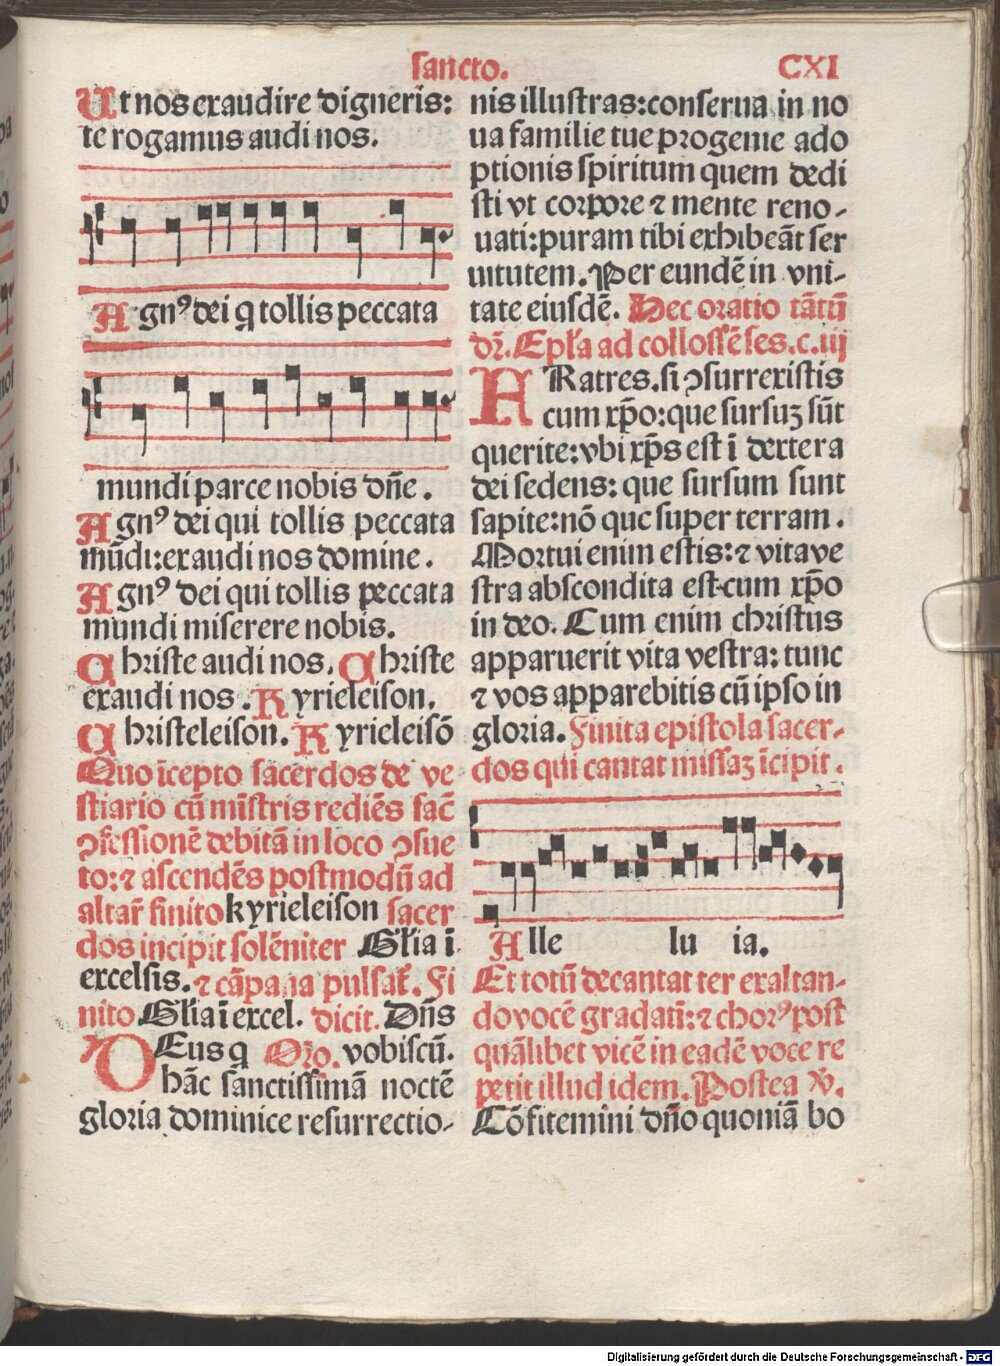 sancto.
CXI
Ut nos exaudire digneris:
te rogamus audi nos.
Agnꝰ dei q̄ tollis peccata
mundi parce nobis dn̄e.
Agnꝰ dei qui tollis peccata
mūdi: exaudi nos domine.
Agnꝰ dei qui tollis peccata
mundi miserere nobis.
Christe audi nos. Christe
exaudi nos. Kyrieleison.
Christeleison. Kyrieleisō
Quo īcepto sacerdos de ve
stiario cū mīstris rediēs fac̄
ꝯfessionē debitā in loco ꝯsue
to: ⁊ ascendēs postmodū ad
altar̄ finito kyrieleison sacer
dos incipit solēniter Gl̄ia ī
excelsis. ⁊ cāpana pulsat̄. Fi
nito Gl̄ia ī excel. dicit. Dn̄s
DEus q̄ Oro. vobiscū.
hāc sanctissimā noctē
gloria dominice resurrectio-
nis illustras: conserua in no
ua familie tue progenie ado
ptionis spiritum quem dedi
sti vt corpore ⁊ mente reno-
uati: puram tibi exhibeāt ser
uitutem. Per eundē in vni-
tate eiusdē. Hec oratio tātū
dr̄. Ep̄la ad collossēses. c. iij
FRatres. si ꝯsurrexistis
cum xp̄o: que sursuꝫ sūt
querite: vbi xp̄s est ī dextera
dei sedens: que sursum sunt
sapite: nō que super terram.
Mortui enim estis: ⁊ vita ve
stra abscondita est cum xp̄o
in deo. Cum enim christus
apparuerit vita vestra: tunc
⁊ vos apparebitis cū ipso in
gloria. Finita epistola sacer-
dos qui cantat missaꝫ īcipit.
Alle lu ia.
Et totū decantat ter exaltan-
do vocē gradatī: ⁊ chorꝰ post
quālibet vicē in eadē voce re
petit illud idem. Postea V̄.
Cōfitemini dn̄o quoniā bo
Digitalisierung gefördert durch die Deutsche Forschungsgemeinschaft - DFG